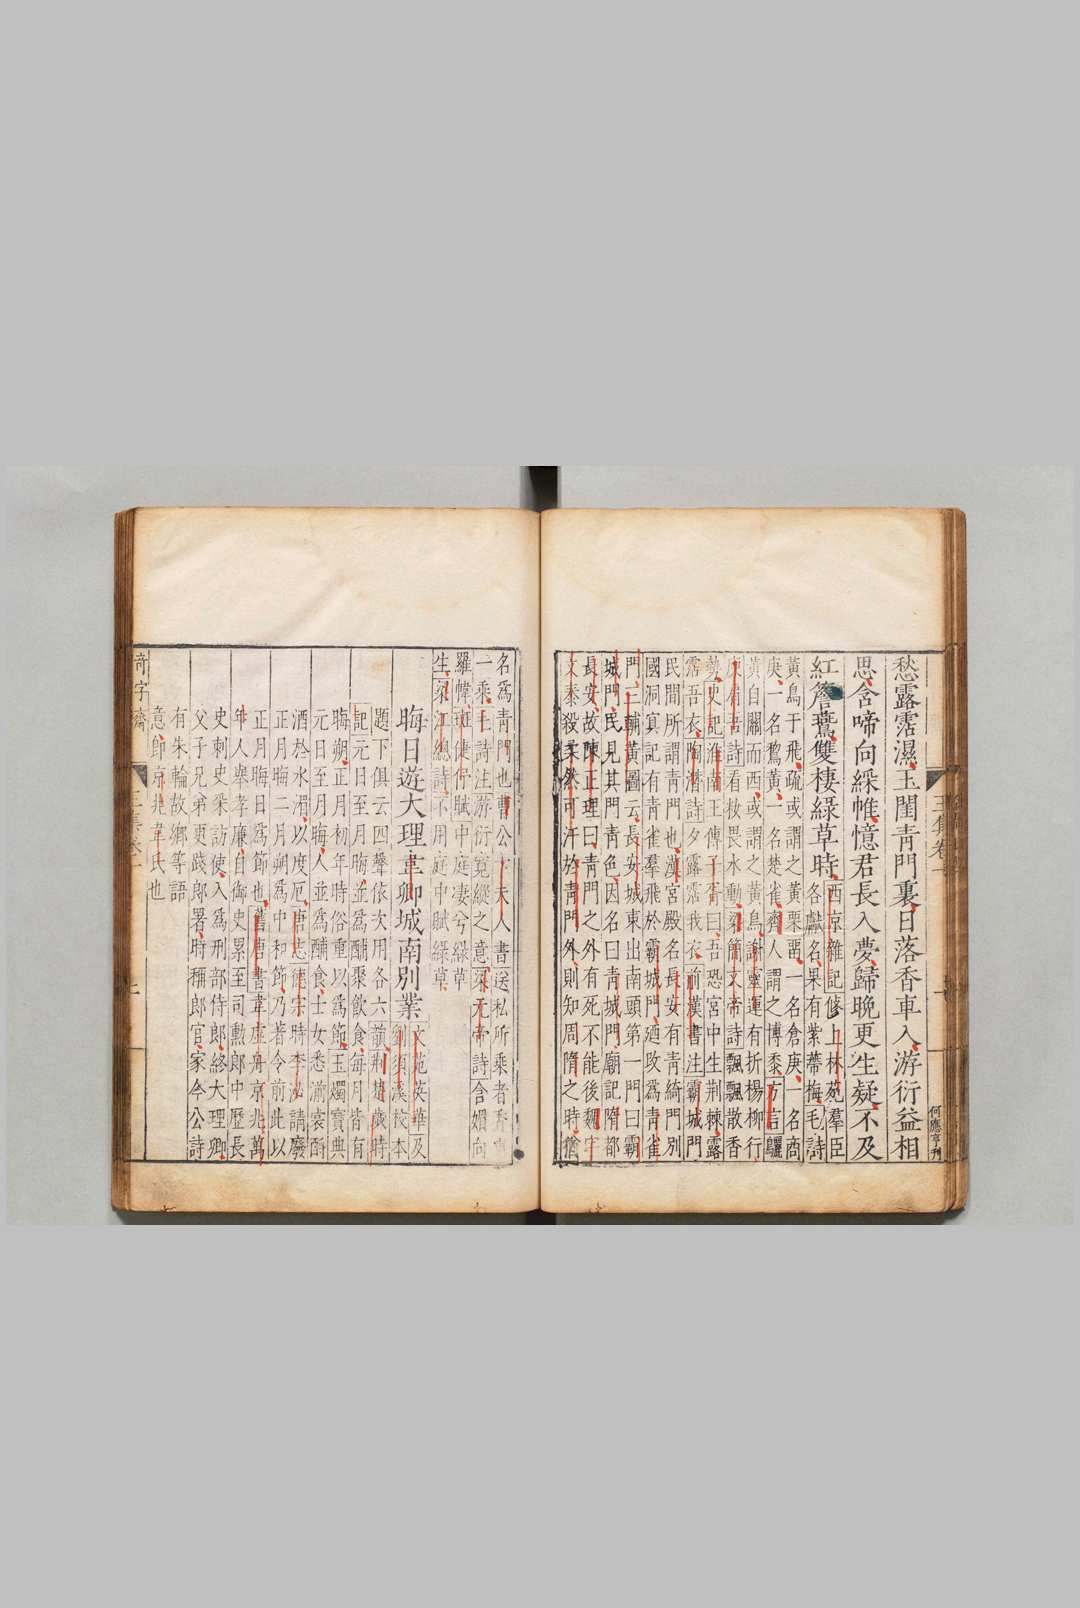 愁露霑濕玉閨青門裏日落香車入游衍益相
思含啼向綵帷憶君長入夢歸晚更生疑不及
紅簷鷰雙棲綠草時西京雜記修上林苑羣臣
各獻名果有紫蔕梅毛詩
黃鳥于飛疏或謂之黃栗留一名倉庚一名商
庚一名鵹黃一名楚雀齊人謂之博黍方言鸝
黃自關而西或謂之黃鳥謝靈運有折楊柳行
庾肩吾詩看妝畏水動梁簡文帝詩飄飄散香
勢史記淮南王傳子胥曰吾恐宮中生荆棘露
霑吾衣陶潛詩夕露霑我衣前漢書注霸城門
民間所謂青門也漢宮殿名長安有青綺門別
國洞冥記有青雀羣飛於霸城門廼改爲青雀
門三輔黃圖云長安城東出南頭第一門曰霸
城門民見其門青色因名曰青城門廟記隋都
長安故陳正理曰青門之外有死不能後魏字
文泰殺柔然可汗於青門外則知周隋之時猶
何應亨刊
名爲青門也曹公夫人書送私所乘香車
一乘毛詩注游衍寬縱之意梁元帝詩含媚向
羅幃班倢伃賦中庭凄兮綠草
生梁江總詩不用庭中賦綠草
晦日遊大理韋卿城南別業文苑英華及
劉須溪校本
題下俱云四聲依次用各六韻荊楚歲時
記元日至月晦並爲酺聚飲食每月皆有
晦朔正月初年時俗重以爲節玉燭寶典
元日至月晦人並爲酺食士女悉湔裳酹
酒於水湄以度厄唐志德宗時李泌請廢
正月晦二月朔爲中和節乃著令前此以
正月晦日爲節也舊唐書韋虛舟京兆萬
年人舉孝廉自御史累至司勳郎中歷長
史刺史采訪使入爲刑部侍郎終大理卿
父子兄弟更踐郎署時稱郎官家今公詩
有朱輪故鄉等語
意即京兆韋氏也